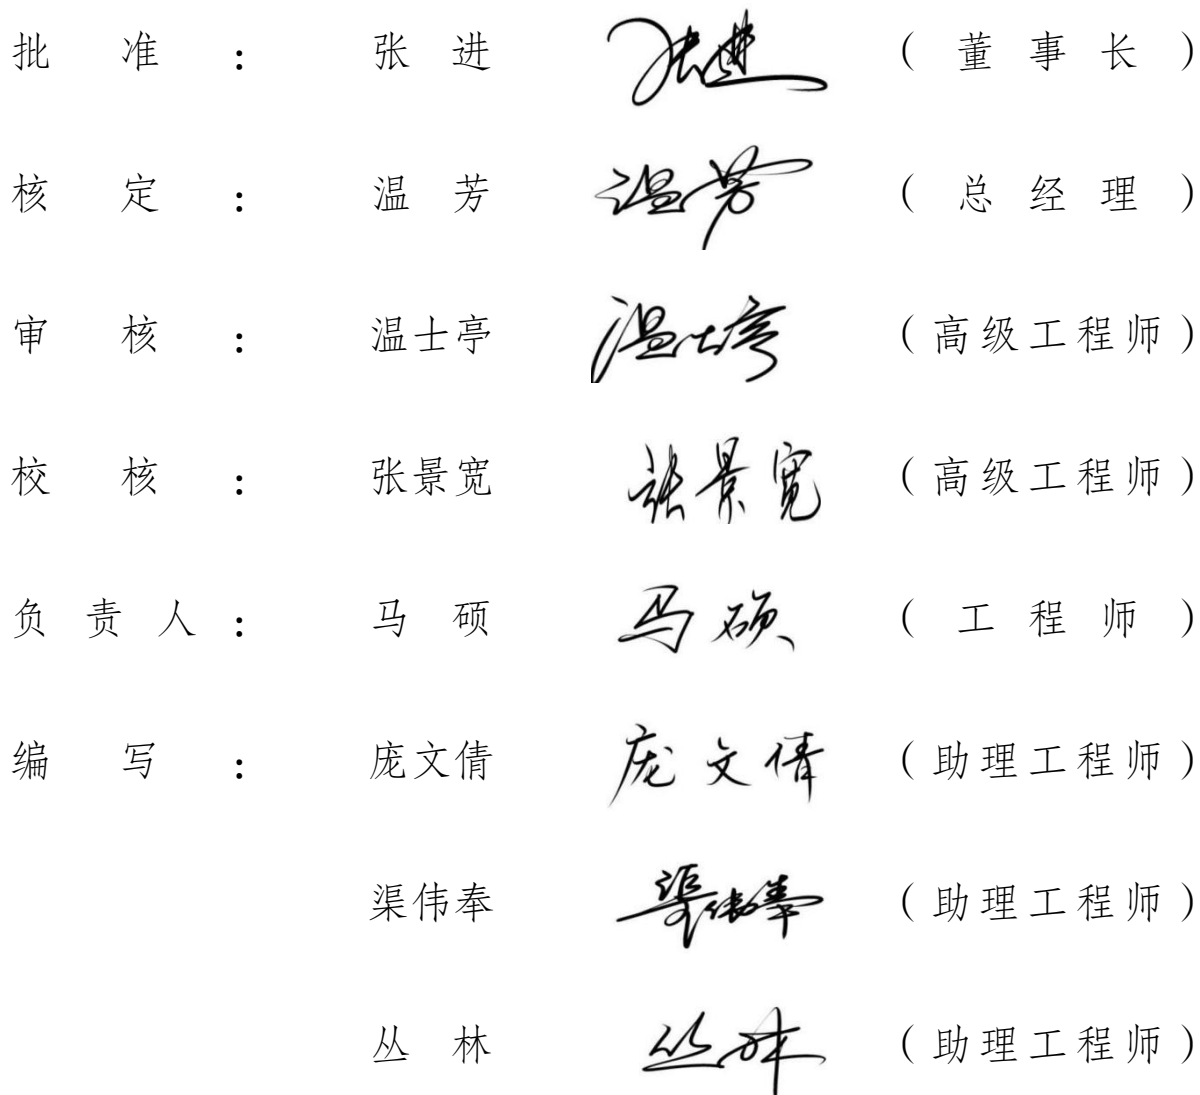 批准： 张进 张进 （董事长）
核定： 温芳 温芳 （总经理）
审核： 温士亭 温士亭 （高级工程师）
校核： 张景宽 张景宽 （高级工程师）
负责人： 马硕 马硕 （工程师）
编写： 庞文倩 庞文倩 （助理工程师）
渠伟奉 渠伟奉 （助理工程师）
丛林 丛林 （助理工程师）